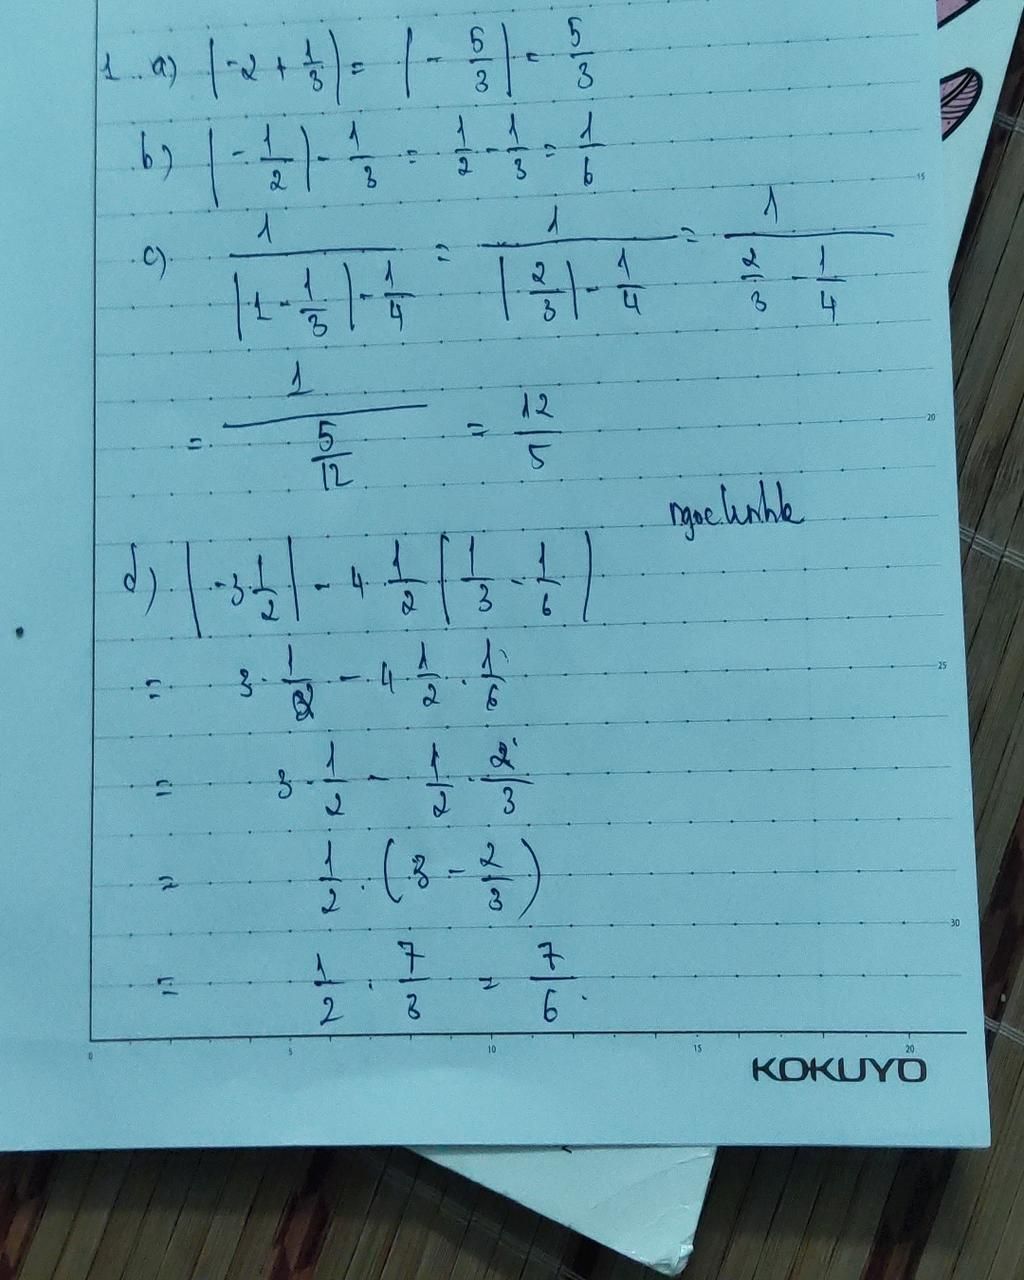 1. a) |-2 + 1/3| = |- 5/3| = 5/3
b) |-1/2| - 1/3 = 1/2 - 1/3 = 1/6
c) 1/(|1 - 1/3| - 1/4) = 1/(|2/3| - 1/4) = 1/(2/3 - 1/4)
= 1/(5/12) = 12/5
d) |-3 1/2| - 4 · 1/2 |1/3 - 1/6|
= 3 · 1/2 - 4 1/2 · 1/6
= 3 · 1/2 - 1/2 · 2/3
= 1/2 · (3 - 2/3)
= 1/2 · 7/3 = 7/6.
15
20
25
30
0 5 10 15 20
KOKUYO